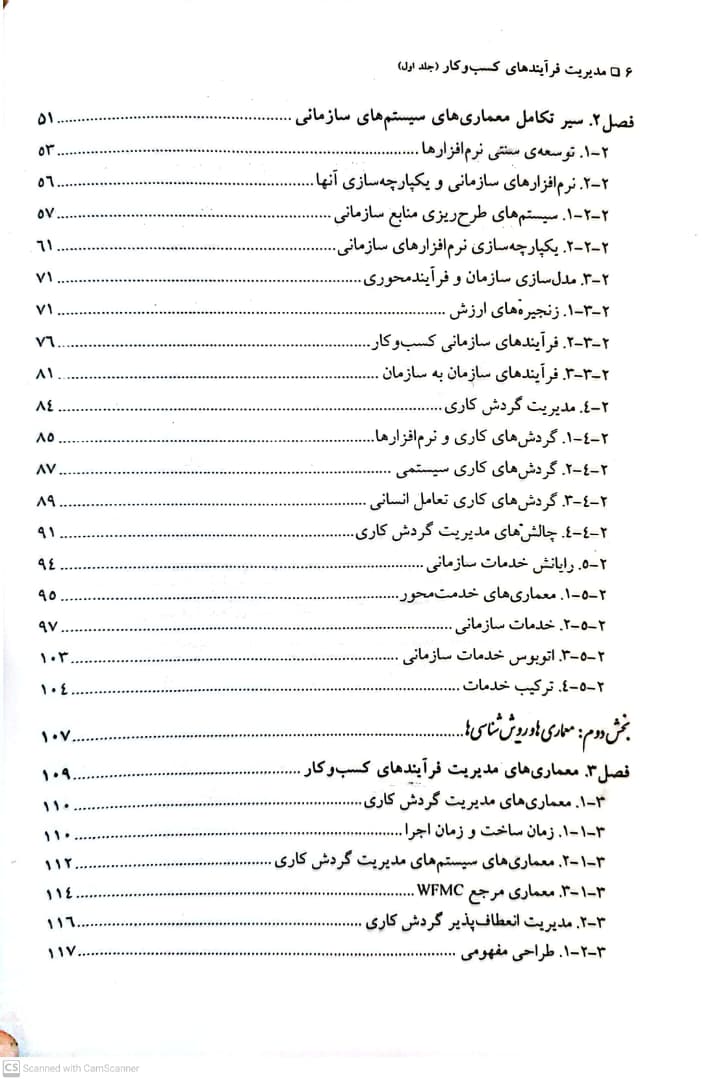 ۶ □ مدیریت فرآیندهای کسب‌وکار (جلد اول)
فصل ۲. سیر تکامل معماری‌های سیستم‌های سازمانی ........ ۵۱
۲-۱. توسعه‌ی سنتی نرم‌افزارها ........ ۵۳
۲-۲. نرم‌افزارهای سازمانی و یکپارچه‌سازی آنها ........ ۵۶
۲-۲-۱. سیستم‌های طرح‌ریزی منابع سازمانی ........ ۵۷
۲-۲-۲. یکپارچه‌سازی نرم‌افزارهای سازمانی ........ ۶۱
۲-۳. مدل‌سازی سازمان و فرآیندمحوری ........ ۷۱
۲-۳-۱. زنجیره‌های ارزش ........ ۷۱
۲-۳-۲. فرآیندهای سازمانی کسب‌وکار ........ ۷۶
۲-۳-۳. فرآیندهای سازمان به سازمان ........ ۸۱
۲-۴. مدیریت گردش کاری ........ ۸۴
۲-۴-۱. گردش‌های کاری و نرم‌افزارها ........ ۸۵
۲-۴-۲. گردش‌های کاری سیستمی ........ ۸۷
۲-۴-۳. گردش‌های کاری تعامل انسانی ........ ۸۹
۲-۴-۴. چالش‌های مدیریت گردش کاری ........ ۹۱
۲-۵. رایانش خدمات سازمانی ........ ۹۴
۲-۵-۱. معماری‌های خدمت‌محور ........ ۹۵
۲-۵-۲. خدمات سازمانی ........ ۹۷
۲-۵-۳. اتوبوس خدمات سازمانی ........ ۱۰۳
۲-۵-۴. ترکیب خدمات ........ ۱۰۴
بخش دوم: معماری‌ها و روش‌شناسی‌ها ........ ۱۰۷
فصل ۳. معماری‌های مدیریت فرآیندهای کسب‌وکار ........ ۱۰۹
۳-۱. معماری‌های مدیریت گردش کاری ........ ۱۱۰
۳-۱-۱. زمان ساخت و زمان اجرا ........ ۱۱۰
۳-۱-۲. معماری‌های سیستم‌های مدیریت گردش کاری ........ ۱۱۲
۳-۱-۳. معماری مرجع WFMC ........ ۱۱۴
۳-۲. مدیریت انعطاف‌پذیر گردش کاری ........ ۱۱۶
۳-۲-۱. طراحی مفهومی ........ ۱۱۷
CS Scanned with CamScanner